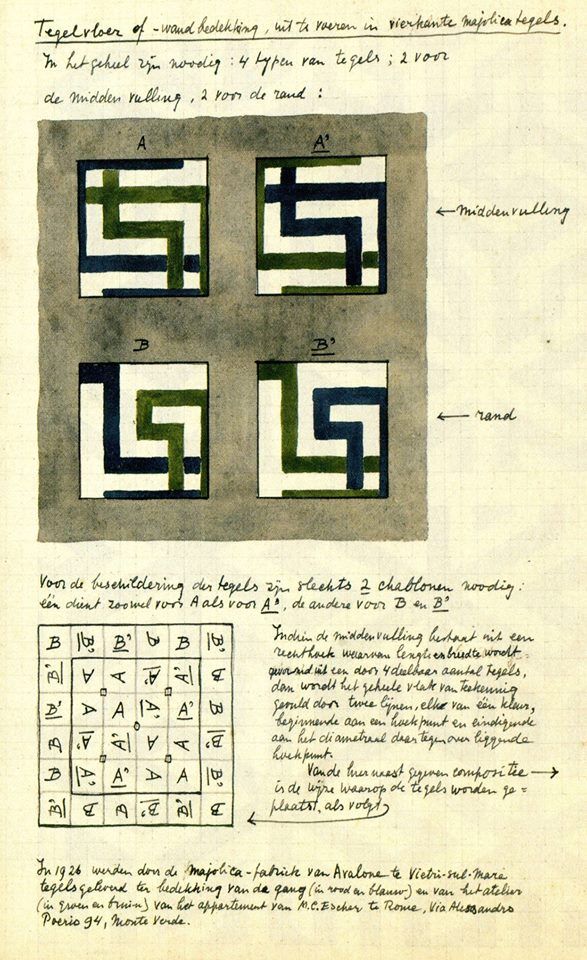 Tegelvloer of -wandbedekking, uit te voeren in vierkante majolica tegels.
In het geheel zijn noodig: 4 typen van tegels; 2 voor
de middenvulling, 2 voor de rand:
A A'
← middenvulling
B B'
← rand
Voor de beschildering der tegels zijn slechts 2 chablonen noodig:
één dient zoowel voor A als voor A', de andere voor B en B'
B B' B' B B B'
B' A A A' A' B
B' A A A' A' B
B A' A' A A B'
B A' A' A A B'
B' B B B' B' B
Indien de middenvulling bestaat uit een
rechthoek waarvan lengte en breedte wordt
gevormd uit een door 4 deelbaar aantal tegels,
dan wordt het geheele vlak van teekening
gevuld door twee lijnen, elke van één kleur,
beginnende aan een hoekpunt en eindigende
aan het diametraal daar tegenover liggende
hoekpunt.
Van de hiernaast gegeven compositie →
is de wijze waarop de tegels worden ge=
plaatst, als volgt
In 1926 werden door de majolica-fabriek van Avalone te Vietri-sul-Mare
tegels geleverd ter bedekking van de gang (in rood en blauw) en van het atelier
(in groen en bruin) van het appartement van M.C. Escher te Rome, Via Alessandro
Poerio 94, Monte Verde.